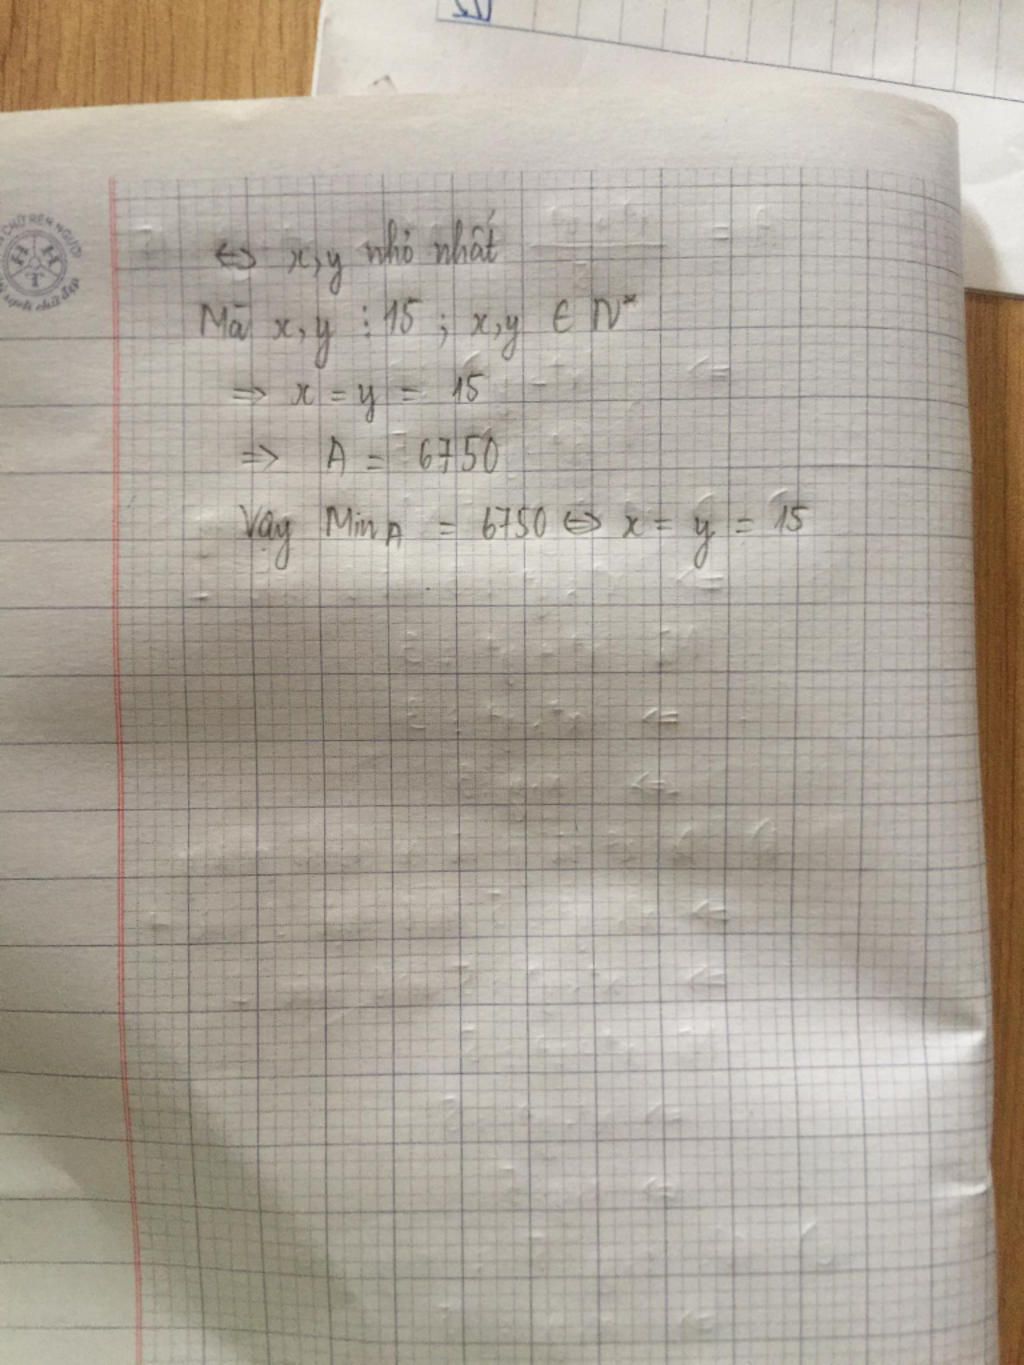 ⇔ x, y nhỏ nhất
Mà x, y ⋮ 15 ; x, y ∈ N*
⇒ x = y = 15
⇒ A = 6750
Vậy Min A = 6750 ⇔ x = y = 15